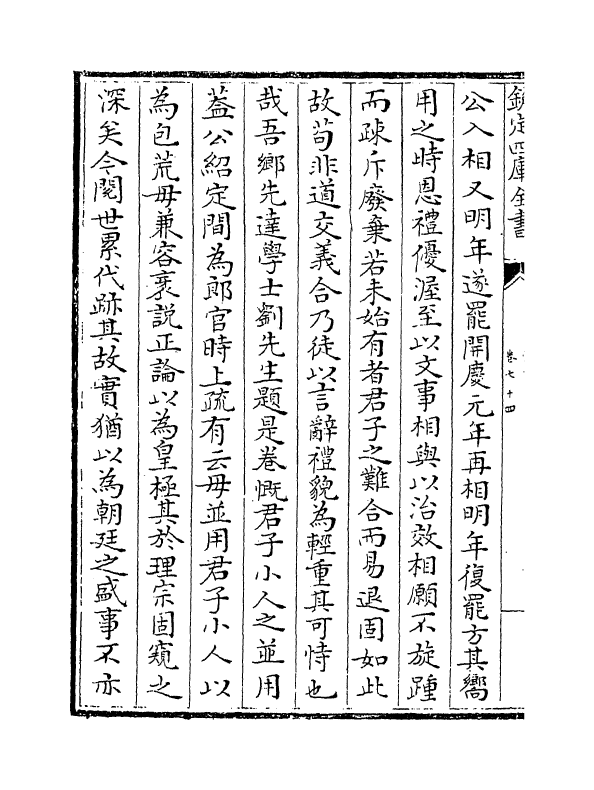 欽定四庫全書
卷七十四
公入相又明年遂罷開慶元年再相明年復罷方其嚮
用之時恩禮優渥至以文事相與以治效相願不旋踵
而疎斥廢棄若未始有者君子之難合而易退固如此
故苟非道交義合乃徒以言辭禮貌為輕重其可恃也
哉吾鄉先達學士劉先生題是卷慨君子小人之並用
蓋公紹定間為郎官時上疏有云毋並用君子小人以
為包荒毋兼容衺說正論以為皇極其於理宗固窺之
深矣今閱世累代跡其故實猶以為朝廷之盛事不亦